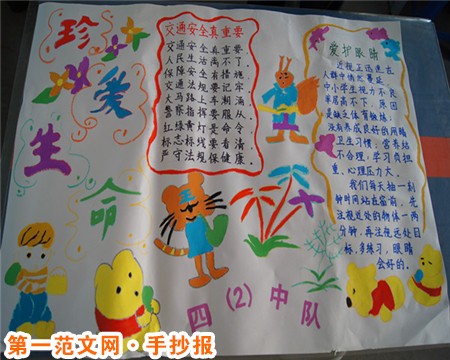 珍
爱
生
命
交通安全真重要
交通安全真重要,
人民生活
保障安全
交通法规
大马路上
警察指挥
红绿黄灯
标志标线
严守法规保健康.
爱护眼睛
近视正迅速在
人群中
中小学生视力不良
率居高不下. 原因
是缺乏体育锻炼,
没有养成良好的用眼
卫生习惯; 营养结
不合理; 学习负担
重, 心理压力大.
我们每天抽一刻
钟时间站在窗前, 先
注视近处的物体一两
分钟, 再注视远处目
标, 多练习, 眼睛
会好的.
四(2)中队
第一范文网·手抄报